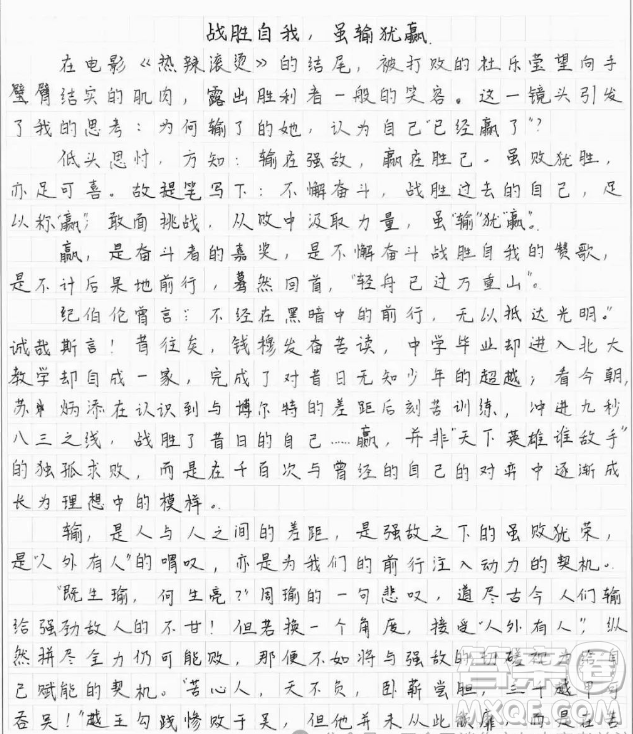 战胜自我，虽输犹赢.
在电影《热辣滚烫》的结尾，被打败的杜乐莹望向手
壁臂结实的肌肉，露出胜利者一般的笑容。这一镜头引发
了我的思考：为何输了的她，认为自己"已经赢了"？
低头思忖，方知：输在强敌，赢在胜己。虽败犹胜，
亦足可喜。故提笔写下：不懈奋斗，战胜过去的自己，足
以称"赢"；敢面挑战，从败中汲取力量，虽"输"犹"赢"。
赢，是奋斗者的嘉奖，是不懈奋斗战胜自我的赞歌，
是不计后果地前行，蓦然回首，"轻舟已过万重山"。
纪伯伦言：不经在黑暗中的前行，无以抵达光明。"
诚哉斯言！昔往矣，钱穆发奋苦读，中学毕业却进入北大
教学却自成一家，完成了对昔日无知少年的超越；看今朝，
苏炳添在认识到与博尔特的差距后刻苦训练，冲进九秒
八三之线，战胜了昔日的自己……赢，并非"天下英雄谁敌手"
的独孤求败，而是在千百次与曾经的自己的对弈中逐渐成
长为理想中的模样。
输，是人与人之间的差距，是强敌之下的虽败犹荣，
是"人外有人"的喟叹，亦是为我们的前行注入动力的契机。
"既生瑜，何生亮？"周瑜的一句悲叹，道尽古今人们输
给强劲敌人的不甘！但若换一个角度，接受"人外有人"，纵
然拼尽全力仍可能败，那便不如将与强敌的切磋视为给自
己赋能的契机。"苦心人，天不负，卧薪尝胆，三千越甲可
吞吴！"越王勾践惨败于吴，但他并未从此萎靡，而是在苦
答案圈
MXQE.COM